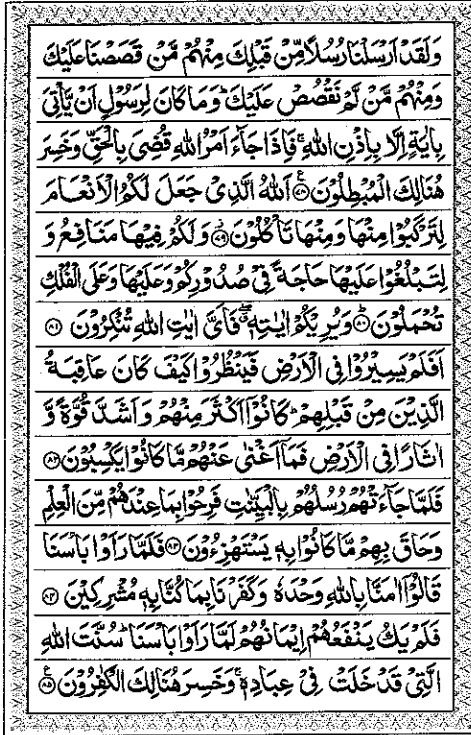 وَلَقَدْ اَرْسَلْنَا رُسُلًا مِّنْ قَبْلِكَ مِنْهُمْ مَّنْ قَصَصْنَا عَلَيْكَ
وَمِنْهُمْ مَّنْ لَّمْ نَقْصُصْ عَلَيْكَ ؕ وَمَا كَانَ لِرَسُوْلٍ اَنْ يَّاْتِىَ
بِاٰيَةٍ اِلَّا بِاِذْنِ اللّٰهِ ۚ فَاِذَا جَآءَ اَمْرُ اللّٰهِ قُضِىَ بِالْحَقِّ وَخَسِرَ
هُنَالِكَ الْمُبْطِلُوْنَ ﴿۷۸﴾ اَللّٰهُ الَّذِىْ جَعَلَ لَكُمُ الْاَنْعَامَ
لِتَرْكَبُوْا مِنْهَا وَمِنْهَا تَاْكُلُوْنَ ﴿۷۹﴾ وَلَكُمْ فِيْهَا مَنَافِعُ وَ
لِتَبْلُغُوْا عَلَيْهَا حَاجَةً فِىْ صُدُوْرِكُمْ وَعَلَيْهَا وَعَلَى الْفُلْكِ
تُحْمَلُوْنَ ﴿۸۰﴾ وَيُرِيْكُمْ اٰيٰتِهٖ ۖ فَاَىَّ اٰيٰتِ اللّٰهِ تُنْكِرُوْنَ ﴿۸۱﴾
اَفَلَمْ يَسِيْرُوْا فِى الْاَرْضِ فَيَنْظُرُوْا كَيْفَ كَانَ عَاقِبَةُ
الَّذِيْنَ مِنْ قَبْلِهِمْ ؕ كَانُوْۤا اَكْثَرَ مِنْهُمْ وَاَشَدَّ قُوَّةً وَّ
اٰثَارًا فِى الْاَرْضِ فَمَاۤ اَغْنٰى عَنْهُمْ مَّا كَانُوْا يَكْسِبُوْنَ ﴿۸۲﴾
فَلَمَّا جَآءَتْهُمْ رُسُلُهُمْ بِالْبَيِّنٰتِ فَرِحُوْا بِمَا عِنْدَهُمْ مِّنَ الْعِلْمِ
وَحَاقَ بِهِمْ مَّا كَانُوْا بِهٖ يَسْتَهْزِءُوْنَ ﴿۸۳﴾ فَلَمَّا رَاَوْا بَاْسَنَا
قَالُوْۤا اٰمَنَّا بِاللّٰهِ وَحْدَهٗ وَكَفَرْنَا بِمَا كُنَّا بِهٖ مُشْرِكِيْنَ ﴿۸۴﴾
فَلَمْ يَكُ يَنْفَعُهُمْ اِيْمَانُهُمْ لَمَّا رَاَوْا بَاْسَنَا ؕ سُنَّتَ اللّٰهِ
الَّتِىْ قَدْ خَلَتْ فِىْ عِبَادِهٖ ۚ وَخَسِرَ هُنَالِكَ الْكٰفِرُوْنَ ﴿۸۵﴾